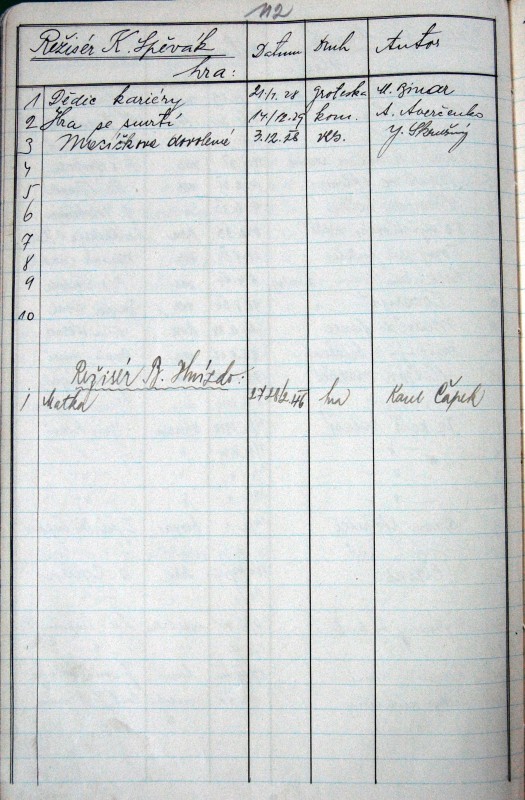 112
Režisér K. Spěvák Datum Druh Autor
hra:
1 Dědic kariéry 21/1.28 groteska
2 Hra se smrtí 14/12.29 kom. A. Averčenko
3 Mesíčkova dovolená 3.12.28
4
5
6
7
8
9
10
Režisér B. Hnízdo:
1 Matka 27 28/2.46 hra Karel Čapek